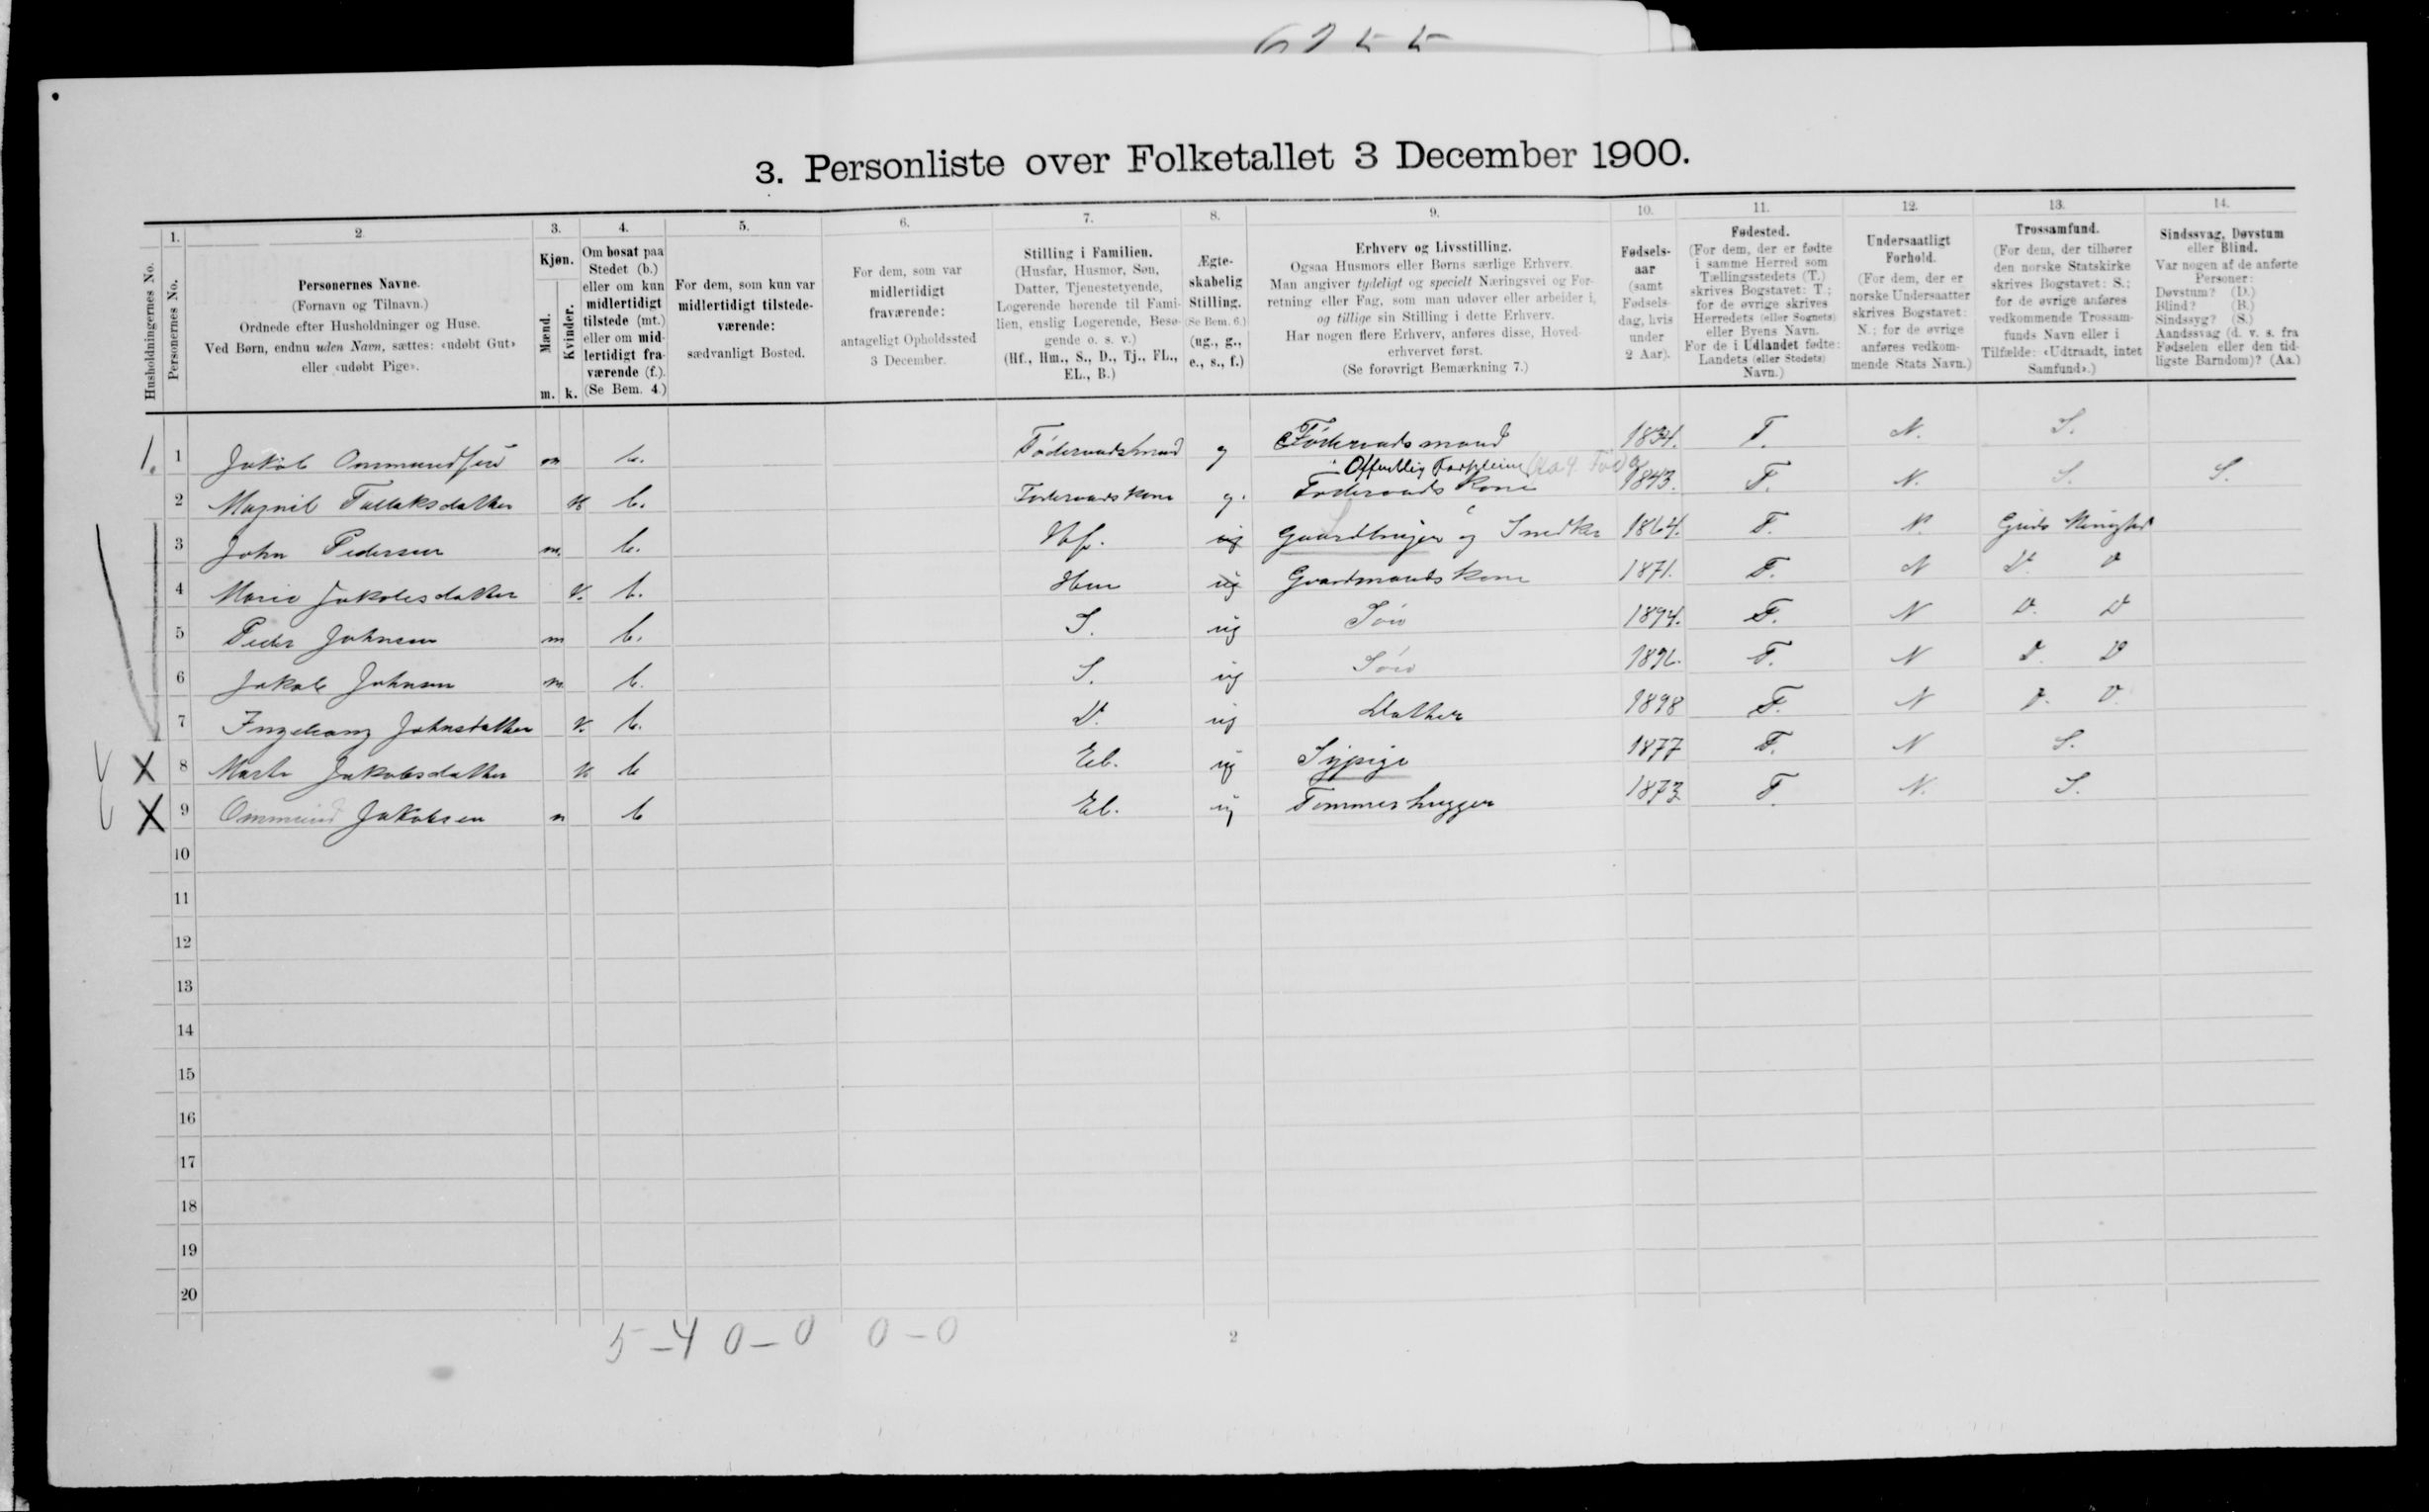 6255
3. Personliste over Folketallet 3 December 1900.
Husholdningernes No.
1.
Personernes No.
2
Personernes Navne.
(Fornavn og Tilnavn.)
Ordnede efter Husholdninger og Huse.
Ved Børn, endnu uden Navn, sættes: «udøbt Gut»
eller «udøbt Pige».
3.
Kjøn.
Mænd.
Kvinder.
m. k.
4.
Om bosat paa
Stedet (b.)
eller om kun
midlertidigt
tilstede (mt.)
eller om mid-
lertidigt fra-
værende (f.).
(Se Bem. 4.)
5.
For dem, som kun var
midlertidigt tilstede-
værende:
sædvanligt Bosted.
6.
For dem, som var
midlertidigt
fraværende:
antageligt Opholdssted
3 December.
7.
Stilling i Familien.
(Husfar, Husmor, Søn,
Datter, Tjenestetyende,
Logerende hørende til Fami-
lien, enslig Logerende, Besø-
gende o. s. v.)
(Hf., Hm., S., D., Tj., FL.,
EL., B.)
8.
Ægte-
skabelig
Stilling.
(Se Bem. 6.)
(ug., g.,
e., s., f.)
9.
Erhverv og Livsstilling.
Ogsaa Husmors eller Børns særlige Erhverv.
Man angiver tydeligt og specielt Næringsvei og For-
retning eller Fag, som man udøver eller arbeider i,
og tillige sin Stilling i dette Erhverv.
Har nogen flere Erhverv, anføres disse, Hoved-
erhvervet først.
(Se forøvrigt Bemærkning 7.)
10.
Fødsels-
aar
(samt
Fødsels-
dag, hvis
under
2 Aar).
11.
Fødested.
(For dem, der er fødte
i samme Herred som
Tællingsstedets (T.)
skrives Bogstavet: T.;
for de øvrige skrives
Herredets (eller Sognets)
eller Byens Navn.
For de i Udlandet fødte:
Landets (eller Stedets)
Navn.)
12.
Undersaatligt
Forhold.
(For dem, der er
norske Undersaatter
skrives Bogstavet:
N.; for de øvrige
anføres vedkom-
mende Stats Navn.)
13.
Trossamfund.
(For dem, der tilhører
den norske Statskirke
skrives Bogstavet: S.;
for de øvrige anføres
vedkommende Trossam-
funds Navn eller i
Tilfælde: «Udtraadt, intet
Samfund».)
14.
Sindssvag, Døvstum
eller Blind.
Var nogen af de anførte
Personer:
Døvstum? (D.)
Blind? (B.)
Sindssyg? (S.)
Aandssvag (d. v. s. fra
Fødselen eller den tid-
ligste Barndom)? (Aa.)
1. 1 Jakob Ommundsen m b. Føderaadsmand g Føderaadsmand 1834. T. N. S.
Offentlig Forpleiet
2 Magnil Tallaksdatter k b. Føderaadskone g. Føderaadskone 1843. T. N. S. S.
3 John Pedersen m. b. Hf. ug Gaardbruger og Snedker 1864. T. N.
4 Marie Jakobsdatter k. b. Hm ug Gaardmandskone 1871. T. N D D
5 Peder Johnsen m b. S. ug Søn 1894. T. N D. D
6 Jakob Johnsen m b. S. ug Søn 1896. T. N D. D
7 Ingeborg Johnsdatter k. b. D. ug Datter 1898 T. N D. D.
X 8 Marte Jakobsdatter k b El. ug Sypige 1877 T. N S.
X 9 Ommund Jakobsen m b El. ug Tømmerhugger 1873 T. N. S.
10
11
12
13
14
15
16
17
18
19
20
5-4 0-0 0-0
2